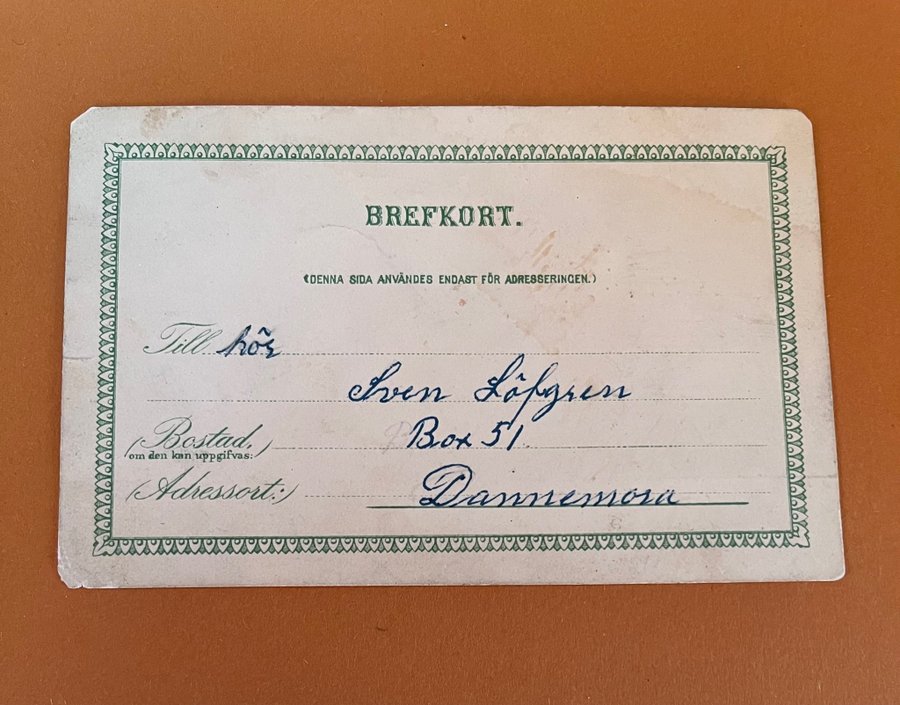 BREFKORT.
(DENNA SIDA ANVÄNDES ENDAST FÖR ADRESSERINGEN.)
Till
Sven Löfgren
(Bostad,
om den kan uppgifvas:)
Box 51.
(Adressort:)
Dannemora